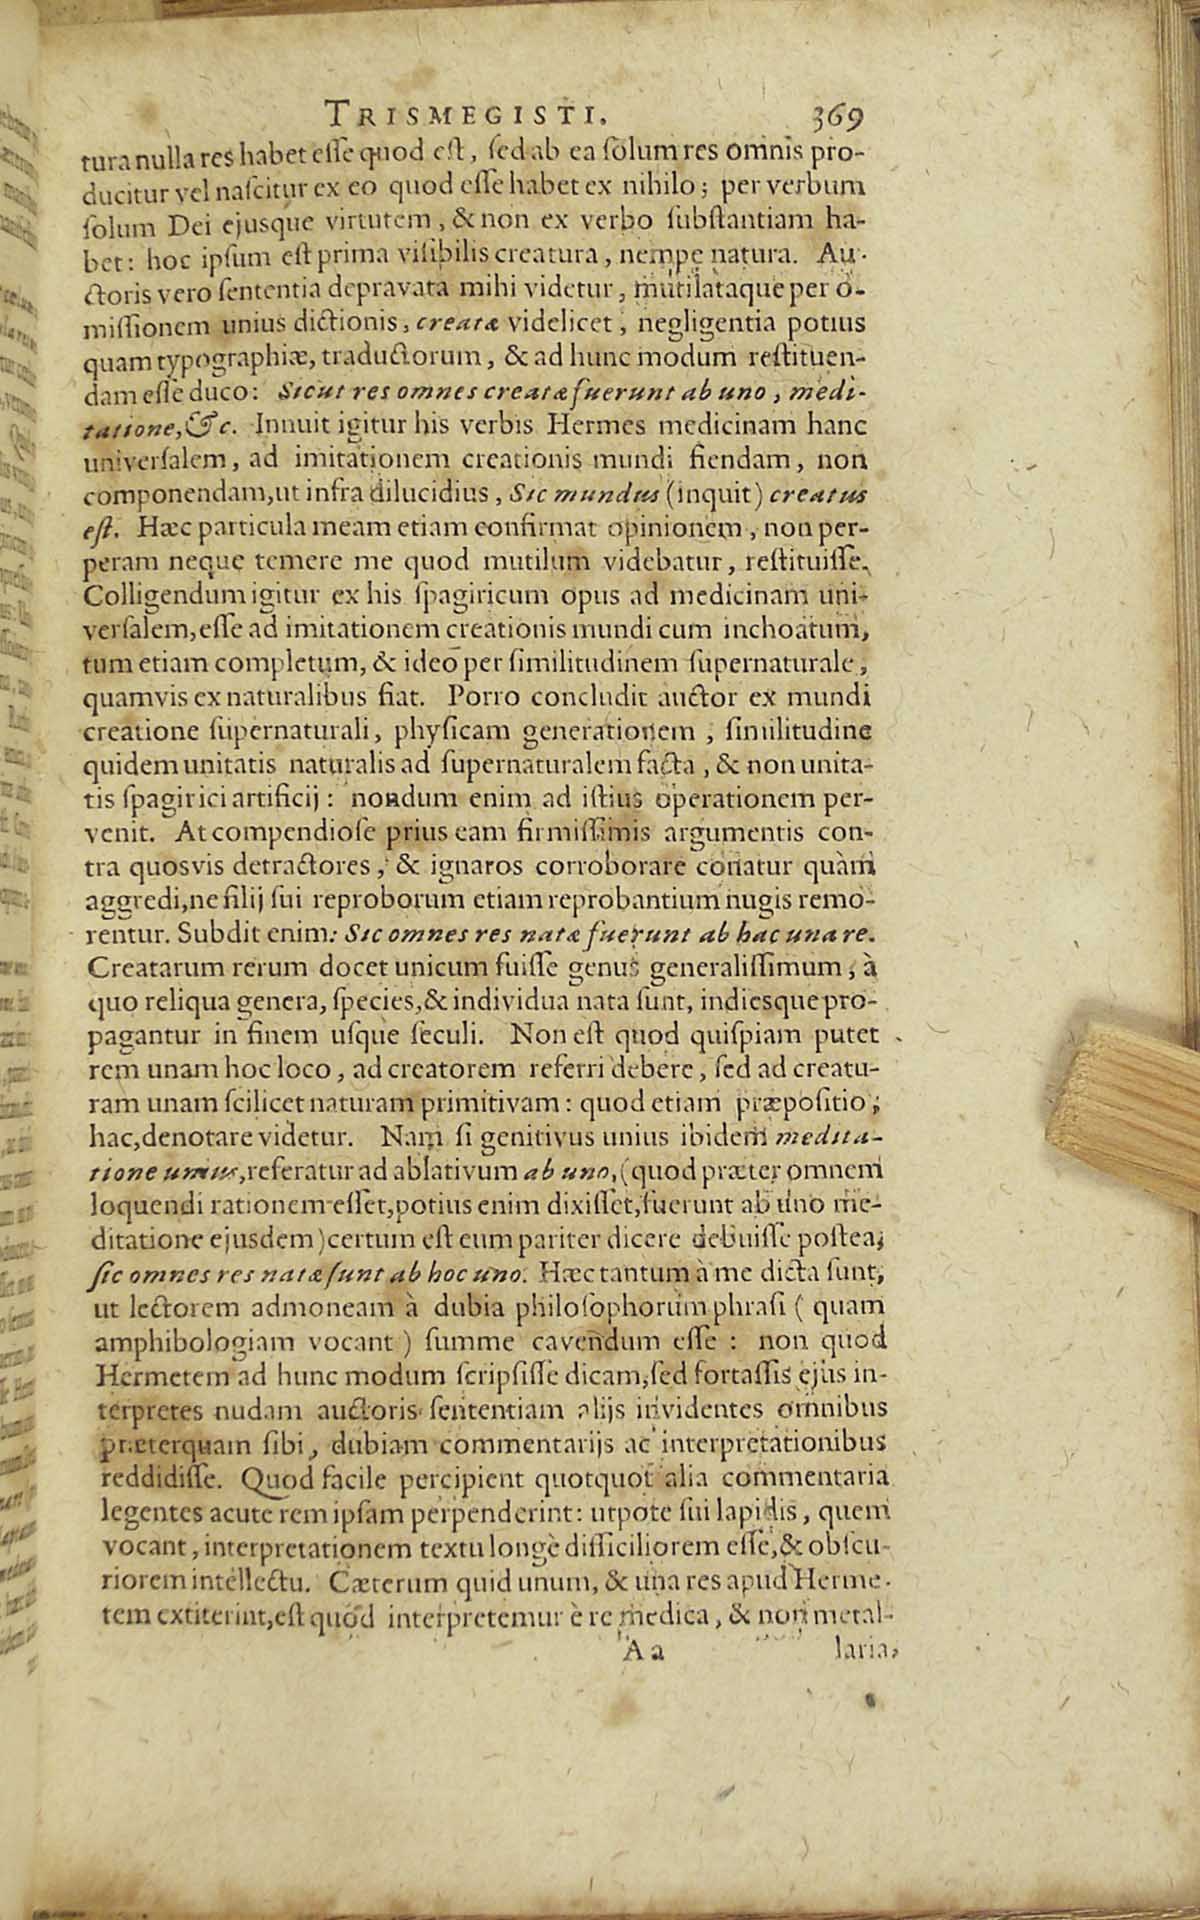 TRISMEGISTI. 369
tura nulla res habet eſſe quod eſt, ſed ab ea ſolum res omnis pro-
ducitur vel naſcitur ex eo quod eſſe habet ex nihilo; per verbum
ſolum Dei ejusque virtutem, & non ex verbo ſubſtantiam ha-
bet: hoc ipſum eſt prima viſibilis creatura, nempe natura. Au-
ctoris vero ſententia depravata mihi videtur, mutilataque per o-
miſſionem unius dictionis, creatæ videlicet, negligentia potius
quam typographiæ, traductorum, & ad hunc modum reſtituen-
dam eſſe duco: Sicut res omnes creatæ fuerunt ab uno, medi-
tatione, &c. Innuit igitur his verbis Hermes medicinam hanc
univerſalem, ad imitationem creationis mundi fiendam, non
componendam, ut infra dilucidius, Sic mundus (inquit) creatus
eſt. Hæc particula meam etiam confirmat opinionem, non per-
peram neque temere me quod mutilum videbatur, reſtituiſſe.
Colligendum igitur ex his ſpagiricum opus ad medicinam uni-
verſalem, eſſe ad imitationem creationis mundi cum inchoatum,
tum etiam completum, & ideo per ſimilitudinem ſupernaturale,
quamvis ex naturalibus fiat. Porro concludit auctor ex mundi
creatione ſupernaturali, phyſicam generationem, ſimilitudine
quidem unitatis naturalis ad ſupernaturalem facta, & non unita-
tis ſpagirici artificij: nondum enim ad iſtius operationem per-
venit. At compendioſe prius eam firmiſſimis argumentis con-
tra quosvis detractores, & ignaros corroborare conatur quàm
aggredi, ne filij ſui reproborum etiam reprobantium nugis remo-
rentur. Subdit enim: Sic omnes res natæ fuerunt ab hac una re.
Creatarum rerum docet unicum fuiſſe genus generaliſſimum, à
quo reliqua genera, ſpecies, & individua nata ſunt, indiesque pro-
pagantur in finem uſque ſeculi. Non eſt quod quiſpiam putet
rem unam hoc loco, ad creatorem referri debere, ſed ad creatu-
ram unam ſcilicet naturam primitivam: quod etiam præpoſitio;
hac, denotare videtur. Nam ſi genitivus unius ibidem medita-
tione unius, referatur ad ablativum ab uno, (quod præter omnem
loquendi rationem eſſet, potius enim dixiſſet, fuerunt ab uno me-
ditatione ejusdem) certum eſt eum pariter dicere debuiſſe poſtea;
ſic omnes res natæ ſunt ab hoc uno. Hæc tantum à me dicta ſunt,
ut lectorem admoneam à dubia philoſophorum phraſi (quam
amphibologiam vocant) ſumme cavendum eſſe: non quod
Hermetem ad hunc modum ſcripſiſſe dicam, ſed fortaſſis ejus in-
terpretes nudam auctoris ſententiam alijs invidentes omnibus
præterquam ſibi, dubiam commentarijs ac interpretationibus
reddidiſſe. Quod facile percipient quotquot alia commentaria
legentes acute rem ipſam perpenderint: utpote ſui lapidis, quem
vocant, interpretationem textu longè difficiliorem eſſe, & obſcu-
riorem intellectu. Cæterum quid unum, & una res apud Herme-
tem extiterint, eſt quod interpretemur è re medica, & non metal-
Aa laria,